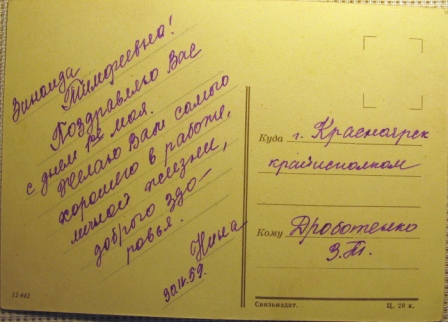 Зинаида
Тимофеевна!
Поздравляю Вас
с днем 1го мая.
Желаю Вам самого
хорошего в работе,
личной жизни,
доброго здо-
ровья.
Нина
30.IV.59.
Куда г. Красноярск
крайисполком
Кому Дроботенко
З.Т.
Связьиздат.
Ц. 20 к.